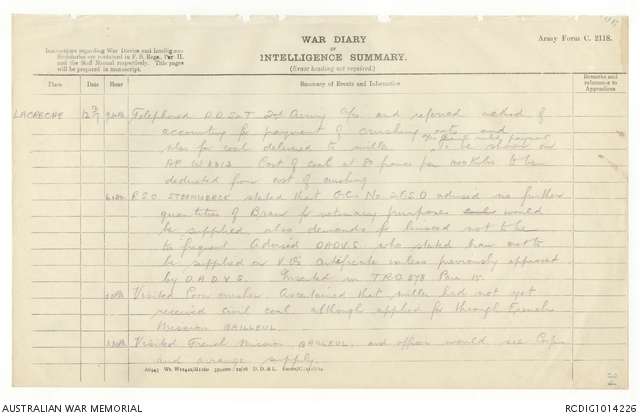 WAR DIARY
or
INTELLIGENCE SUMMARY.
(Erase heading not required.)
Army Form C. 2118.
Instructions regarding War Diaries and Intelligence
Summaries are contained in F. S. Regs., Part II.
and the Staff Manual respectively. Title pages
will be prepared in manuscript.
Place Date Hour Summary of Events and Information Remarks and references to Appendices
Telephoned D.D.S&T 2nd Army and referred method of
accounting for payment of crushing oats and
also for coal delivered to miller to be shown on
Cost of coal at francs for 100 Kilos to be
deducted from cost of crushing
R.S.O STEENWERCK stated that O.C. No 2 F.S.D advised no further
quantities of Bran for veterinary purposes would
be supplied also demands for linseed not to be
so frequent Advised D.A.D.V.S. who stated bran not to
be supplied on V.Os certificate unless previously approved
by D.A.D.V.S. Inserted in T.R.O. 878 Para 15.
Visited Corn crusher. Ascertained that miller had not yet
received civil coal although applied for through French
Mission BAILLEUL.
Visited French Mission BAILLEUL, and officer would see
and arrange supply.
AUSTRALIAN WAR MEMORIAL
RCDIG1014226